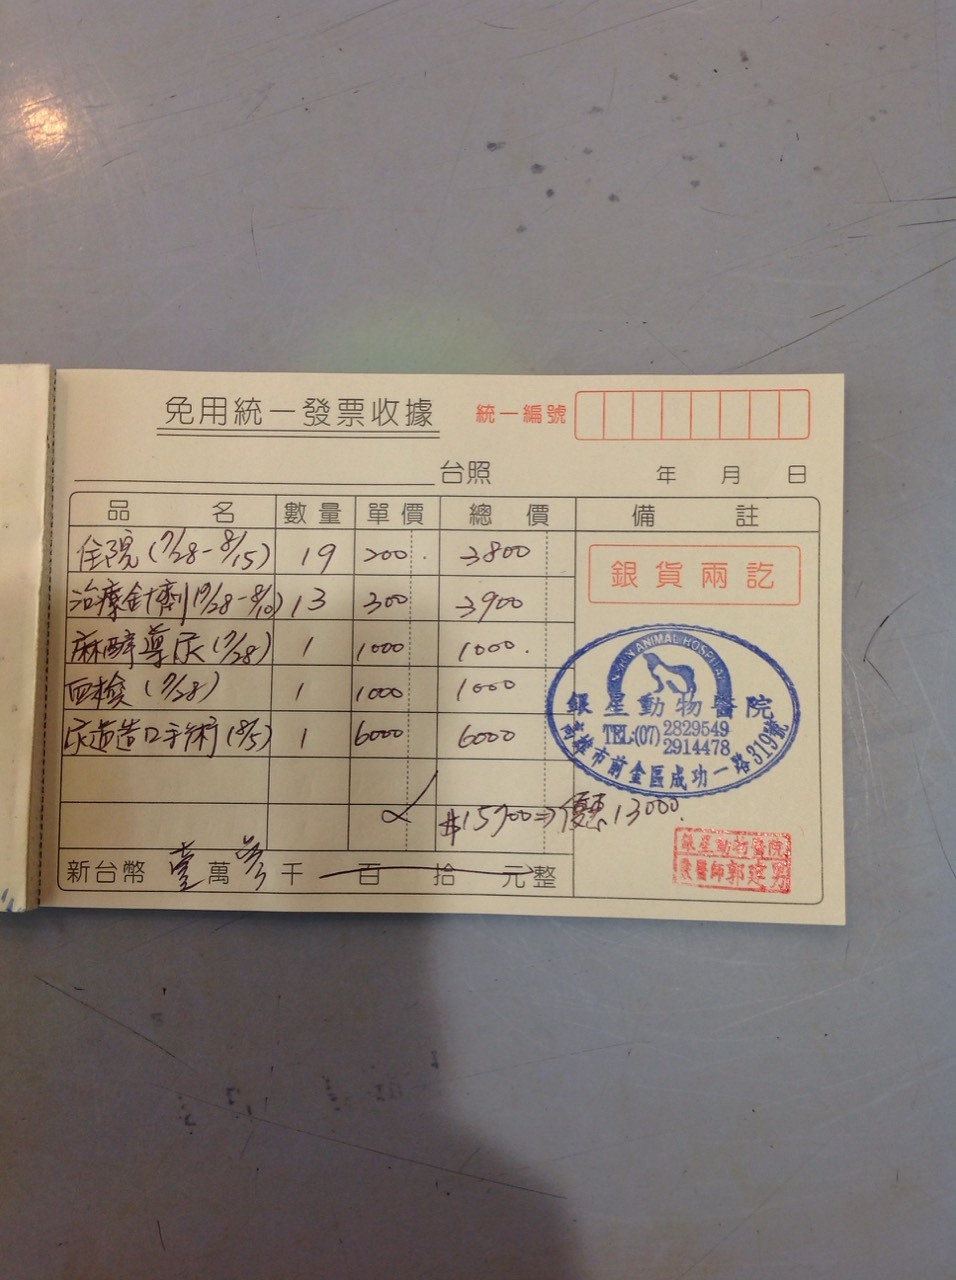 免用統一發票收據 統一編號
台照 年 月 日
品名 數量 單價 總價 備註
住院(7/28-8/15) 19 200. 3800
治療針劑(7/28-8/10) 13 300 3900
麻醉導尿(7/28) 1 1000 1000.
血檢(7/28) 1 1000 1000
尿道造口手術(8/5) 1 6000 6000
$15700⇒優惠13000.
新台幣 壹萬參千百拾元整
銀貨兩訖
ANIMAL HOSPITAL
銀星動物醫院
TEL:(07) 2829549
2914478
高雄市前金區成功一路319號
銀星動物醫院
獸醫師郭建男